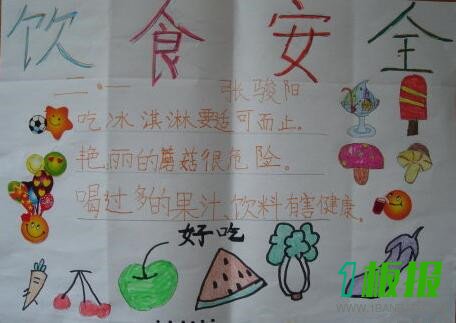 饮食安全
二·一 张骏阳
吃冰淇淋要适可而止。
艳丽的蘑菇很危险。
喝过多的果汁、饮料有害健康。
好吃
1板报
WWW.1BANBAO.COM